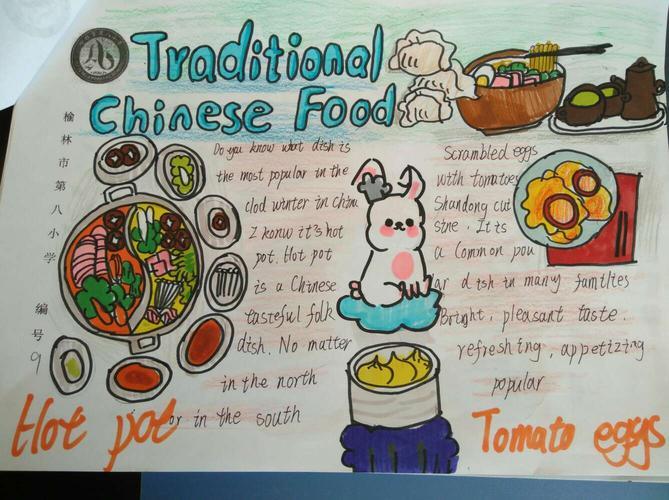 Traditional
Chinese Food
榆林市第八小学 编号 9
Do you know what dish is
the most popular in the
clod winter in china
I konw it's hot
pot. Hot pot
is a Chinese
tasteful folk
dish. No matter
in the north
or in the south
Scrambled eggs
with tomatoes
Shandong cui
sine. It is
a Common pou
lar dish in many families
Bright, pleasant taste.
refreshing, appetizing
popular
Hot pot
Tomato eggs